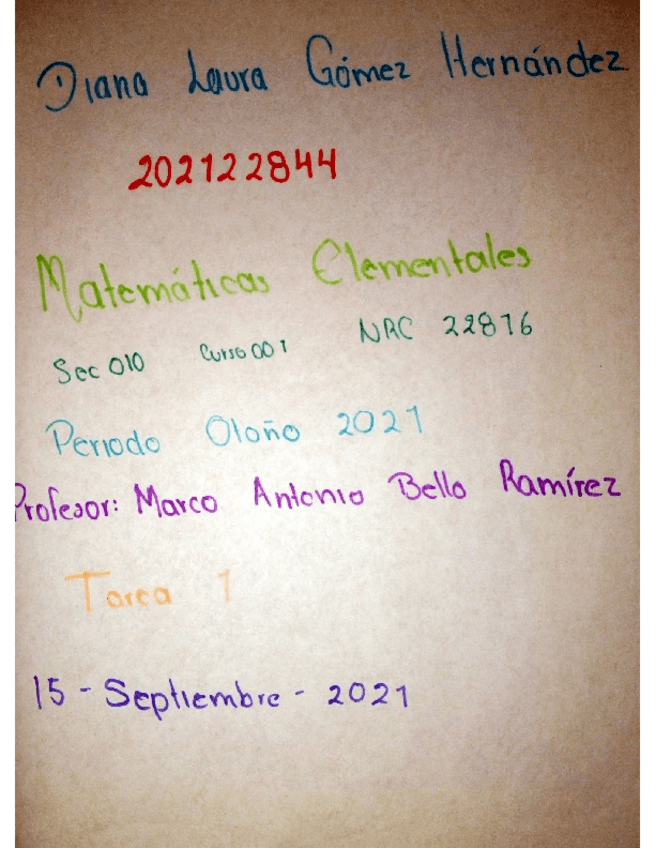 Diana Laura Gómez Hernández
202122844
Matemáticas Elementales
Sec 010 Curso 001 NRC 22816
Periodo Otoño 2021
Profesor: Marco Antonio Bello Ramírez
Tarea 1
15 - Septiembre - 2021